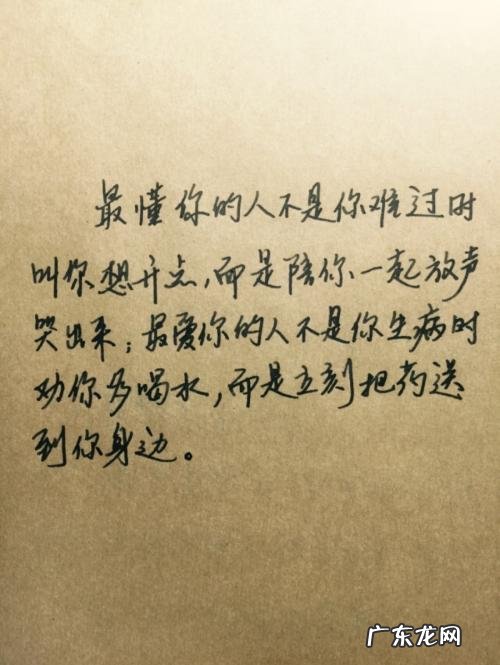 最懂你的人不是你难过时
叫你想开点,而是陪你一起放声
哭出来;最爱你的人不是你生病时
劝你多喝水,而是立刻把药送
到你身边。
广东龙网